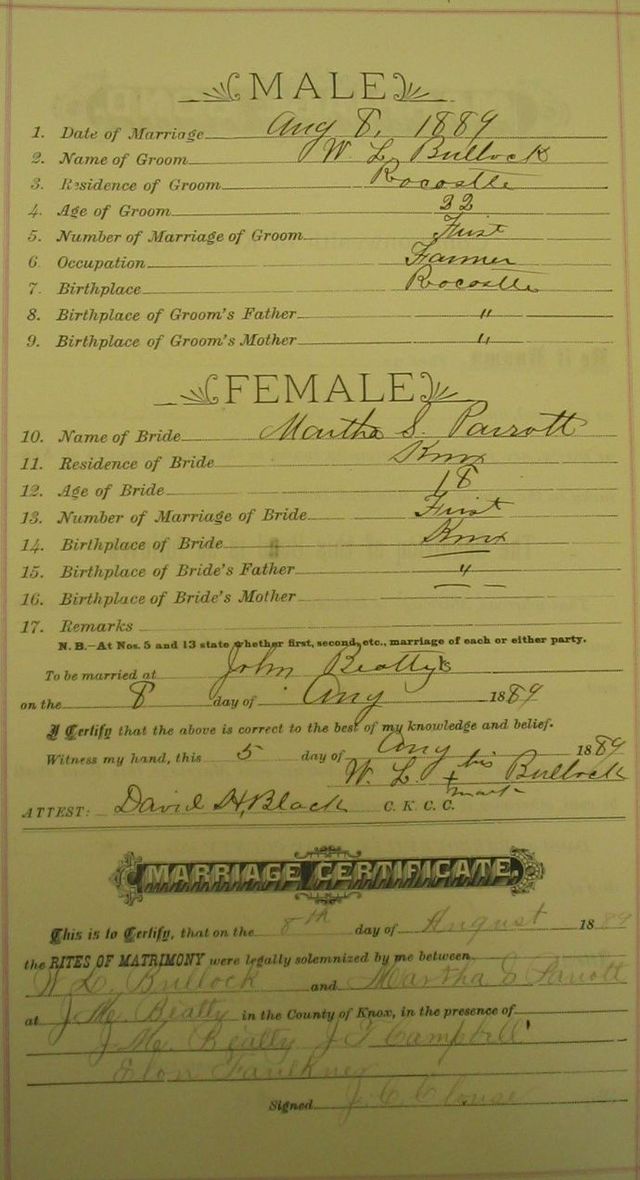 MALE
1. Date of Marriage Aug 8, 1889
2. Name of Groom W. L. Bullock
3. Residence of Groom Rocastle
4. Age of Groom 22
5. Number of Marriage of Groom First
6 Occupation Farmer
7. Birthplace Rocastle
8. Birthplace of Groom's Father "
9. Birthplace of Groom's Mother "
FEMALE
10. Name of Bride Martha S. Parrott
11. Residence of Bride Knox
12. Age of Bride 18
13. Number of Marriage of Bride First
14. Birthplace of Bride Knox
15. Birthplace of Bride's Father "
16. Birthplace of Bride's Mother
17. Remarks
N. B.—At Nos. 5 and 13 state whether first, second, etc., marriage of each or either party.
To be married at John Beatty's
on the 8 day of Aug 1889
I Certify that the above is correct to the best of my knowledge and belief.
Witness my hand, this 5 day of Aug 1889
W. L. his + mark Bullock
ATTEST: David H, Black C. K. C. C.
MARRIAGE CERTIFICATE.
This is to Certify, that on the 8th day of August 1889
the RITES OF MATRIMONY were legally solemnized by me between
W L. Bullock and Martha S Parrott
at J Mc Beatty in the County of Knox, in the presence of
J. Mc. Beatty J T Campbell
Elon Faulkner
Signed J. C. Clouse